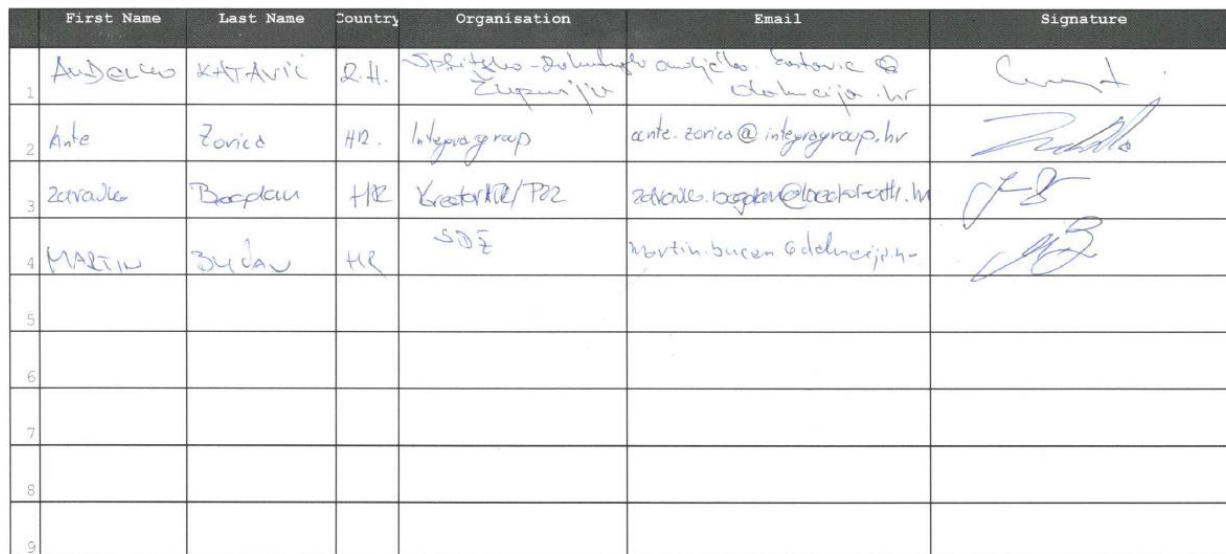 First Name Last Name Country Organisation Email Signature
1 ANĐELKO KATAVIĆ R.H. Splitsko-Dalmatinska
Županija dalmacija.hr
2 Ante Zorica HR. Integra group ante.zorica@integragroup.hr
3 Zdravko Bogdan HR
4 MARTIN BUĆAN HR SDŽ martin.bucan@dalmacija.hr
5
6
7
8
9